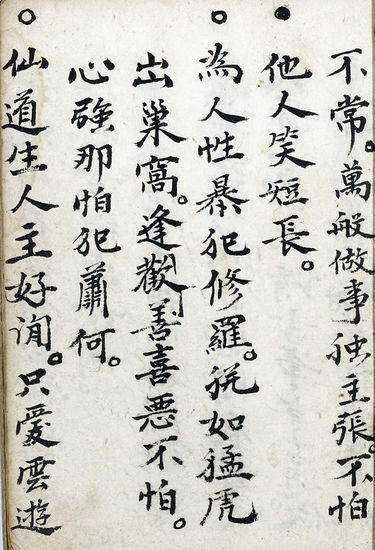 不常。萬般做事独主張。不怕
●他人笑短長。
○為人性暴犯修羅。如猛虎
出巢窩。逢歡善喜惡不怕。
心強那怕犯蕭何。
○仙道生人主好詢。只愛雲遊